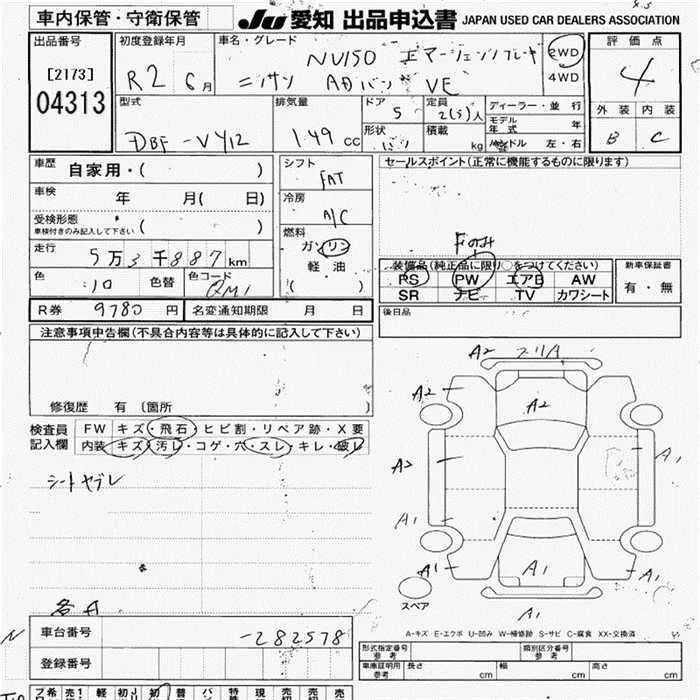 車内保管・守衛保管
JU 愛知 出品申込書 JAPAN USED CAR DEALERS ASSOCIATION
出品番号
[2173]
04313
初度登録年月
R2 6月
車名・グレード
NV150 エマージェンシブレーキ
ニッサン ADバン VE
2WD
4WD
評価点
4
外装 内装
B C
型式
DBF-VY12
排気量
1.49 cc
ドア
5
定員
2(5)人
形状
バン
積載
kg
ディーラー・並行
モデル年式 年
ハンドル 左・右
車歴 自家用・( )
車検 年 月( 日)
受検形態
車検付きのみ記入して下さい ( )
走行 5万3千887km
色 色替 色コード
シロ QM1
シフト
FAT
冷房
A/C
燃料
ガソリン
軽油
( )
セールスポイント(正常に機能するものに限ります)
Fのみ
装備品(純正品に限り○をつけてください)
PS PW エアB AW
SR ナビ TV カワシート
新車保証書
有・無
R券 9780円 名変通知期限 月 日
後日品
注意事項申告欄(不具合内容等は具体的に記入して下さい)
修復歴 有〔箇所 〕
検査員記入欄
FW キズ・飛石・ヒビ割・リペア跡・X要
内装 キズ・汚レ・コゲ・穴・スレ・キレ・破レ
シートヤブレ
A2
A2
A2
A2
A1
A1
A1
A1
A1
A1
スペア
A-キズ E-エクボ U-凹み W-補修跡 S-サビ C-腐食 XX-交換済
各A
車台番号 -282578
登録番号
形式指定番号 参考
類別区分番号 参考
車庫証明用参考 長さ cm 幅 cm 高さ cm